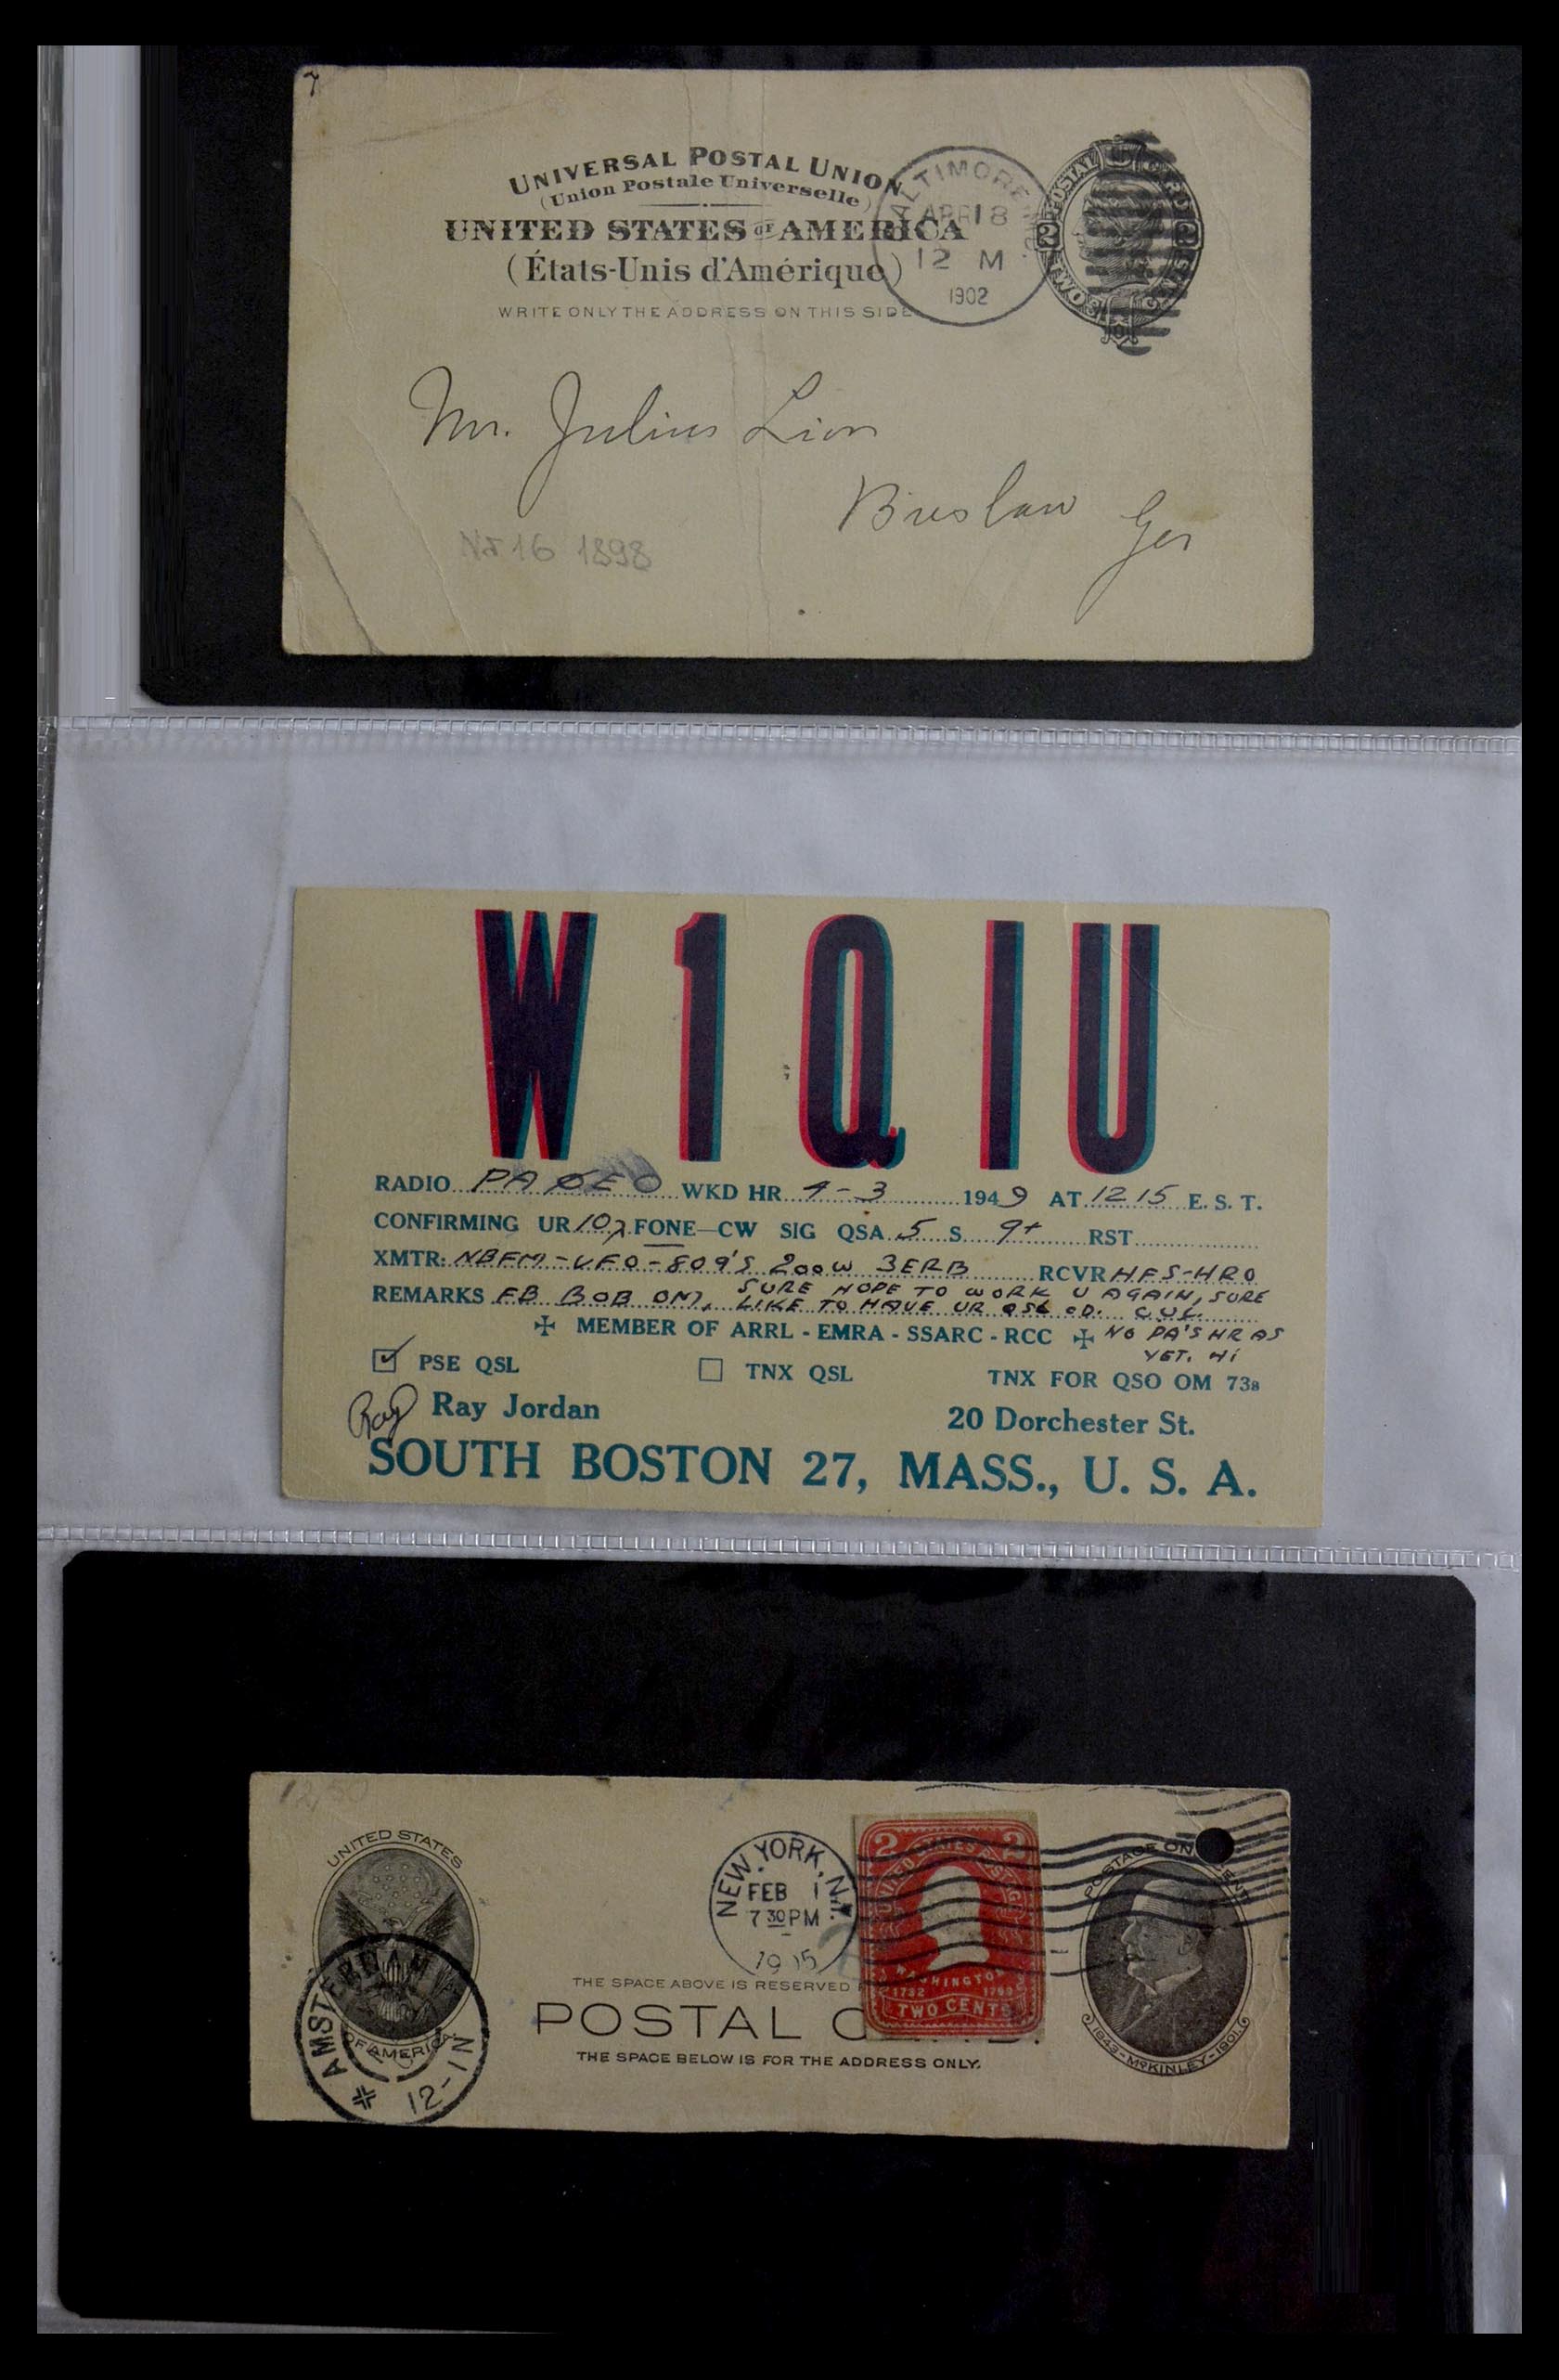 UNIVERSAL POSTAL UNION
(Union Postale Universelle)
UNITED STATES OF AMERICA
(États-Unis d'Amérique)
WRITE ONLY THE ADDRESS ON THIS SIDE
ALTIMORE
APR 18
12 M
1902
POSTAL
2 2
TWO
Mr. Julius Lion
Breslau Ger
1898
W1QIU
RADIO PAØEO WKD HR 4-3 1949 AT 1215 E. S. T.
CONFIRMING UR 10 FONE—CW SIG QSA 5 S 9+ RST
XMTR: NBFM-VFO-809'S 200W 3ERB RCVR HFS-HRO
REMARKS FB BOB OM, SURE HOPE TO WORK U AGAIN, SURE
LIKE TO HAVE UR QSL CD. CUL.
✠ MEMBER OF ARRL - EMRA - SSARC - RCC ✠ NO PA'S HR AS
YET. Hi
☑ PSE QSL ☐ TNX QSL TNX FOR QSO OM 73s
Ray Ray Jordan 20 Dorchester St.
SOUTH BOSTON 27, MASS., U. S. A.
12,50
UNITED STATES
OF AMERICA
AMSTERDAM
12-1N
NEW YORK, N.Y.
FEB 1
7 30 PM
2 2
UNITED STATES POSTAGE
WASHINGTON
1732 1799
TWO CENTS
POSTAGE ONE CENT
1843-McKINLEY-1901
THE SPACE ABOVE IS RESERVED
POSTAL C
THE SPACE BELOW IS FOR THE ADDRESS ONLY.